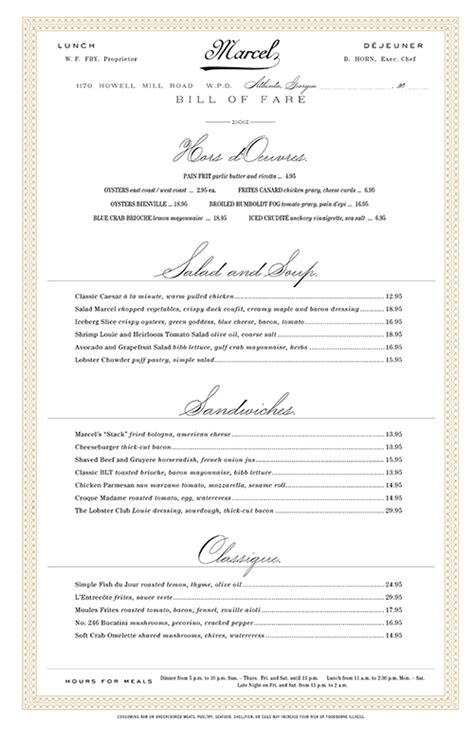 LUNCH
Marcel
DÉJEUNER
W. F. FRY, Proprietor
D. HORN, Exec. Chef
1170 HOWELL MILL ROAD W.P.D. Atlanta, Georgia 20
BILL OF FARE
Hors d'Oeuvres.
PAIN FRIT garlic butter and ricotta ... 4.95
OYSTERS east coast / west coast ... 2.95 ea. FRITES CANARD chicken gravy, cheese curds ... 6.95
OYSTERS BIENVILLE ... 18.95 BROILED HUMBOLDT FOG tomato gravy, pain d'epi ... 16.95
BLUE CRAB BRIOCHE lemon mayonnaise ... 18.95 ICED CRUDITÉ anchovy vinaigrette, sea salt ... 6.95
Salad and Soup.
Classic Caesar à la minute, warm pulled chicken 12.95
Salad Marcel chopped vegetables, crispy duck confit, creamy maple and bacon dressing 18.95
Iceberg Slice crispy oysters, green goddess, blue cheese, bacon, tomato 16.95
Shrimp Louie and Heirloom Tomato Salad olive oil, coarse salt 18.95
Avocado and Grapefruit Salad bibb lettuce, gulf crab mayonnaise, herbs 16.95
Lobster Chowder puff pastry, simple salad 15.95
Sandwiches.
Marcel's "Stack" fried bologna, american cheese 13.95
Cheeseburger thick-cut bacon 13.95
Shaved Beef and Gruyere horseradish, french onion jus 15.95
Classic BLT toasted brioche, bacon mayonnaise, bibb lettuce 13.95
Chicken Parmesan san marzano tomato, mozzarella, sesame roll 14.95
Croque Madame roasted tomato, egg, watercress 14.95
The Lobster Club Louie dressing, sourdough, thick-cut bacon 29.95
Classique.
Simple Fish du Jour roasted lemon, thyme, olive oil 24.95
L'Entrecôte frites, sauce verte 29.95
Moules Frites roasted tomato, bacon, fennel, rouille aioli 17.95
No. 246 Bucatini mushrooms, pecorino, cracked pepper 16.95
Soft Crab Omelette shaved mushrooms, chives, watercress 14.95
HOURS FOR MEALS
Dinner from 5 p.m. to 10 p.m. Sun. - Thurs. Fri. and Sat. until 11 p.m. Lunch from 11 a.m. to 2:00 p.m. Mon. - Sat.
Late Night on Fri. and Sat. from 11 p.m. to 2 a.m.
CONSUMING RAW OR UNDERCOOKED MEATS, POULTRY, SEAFOOD, SHELLFISH, OR EGGS MAY INCREASE YOUR RISK OF FOODBORNE ILLNESS.